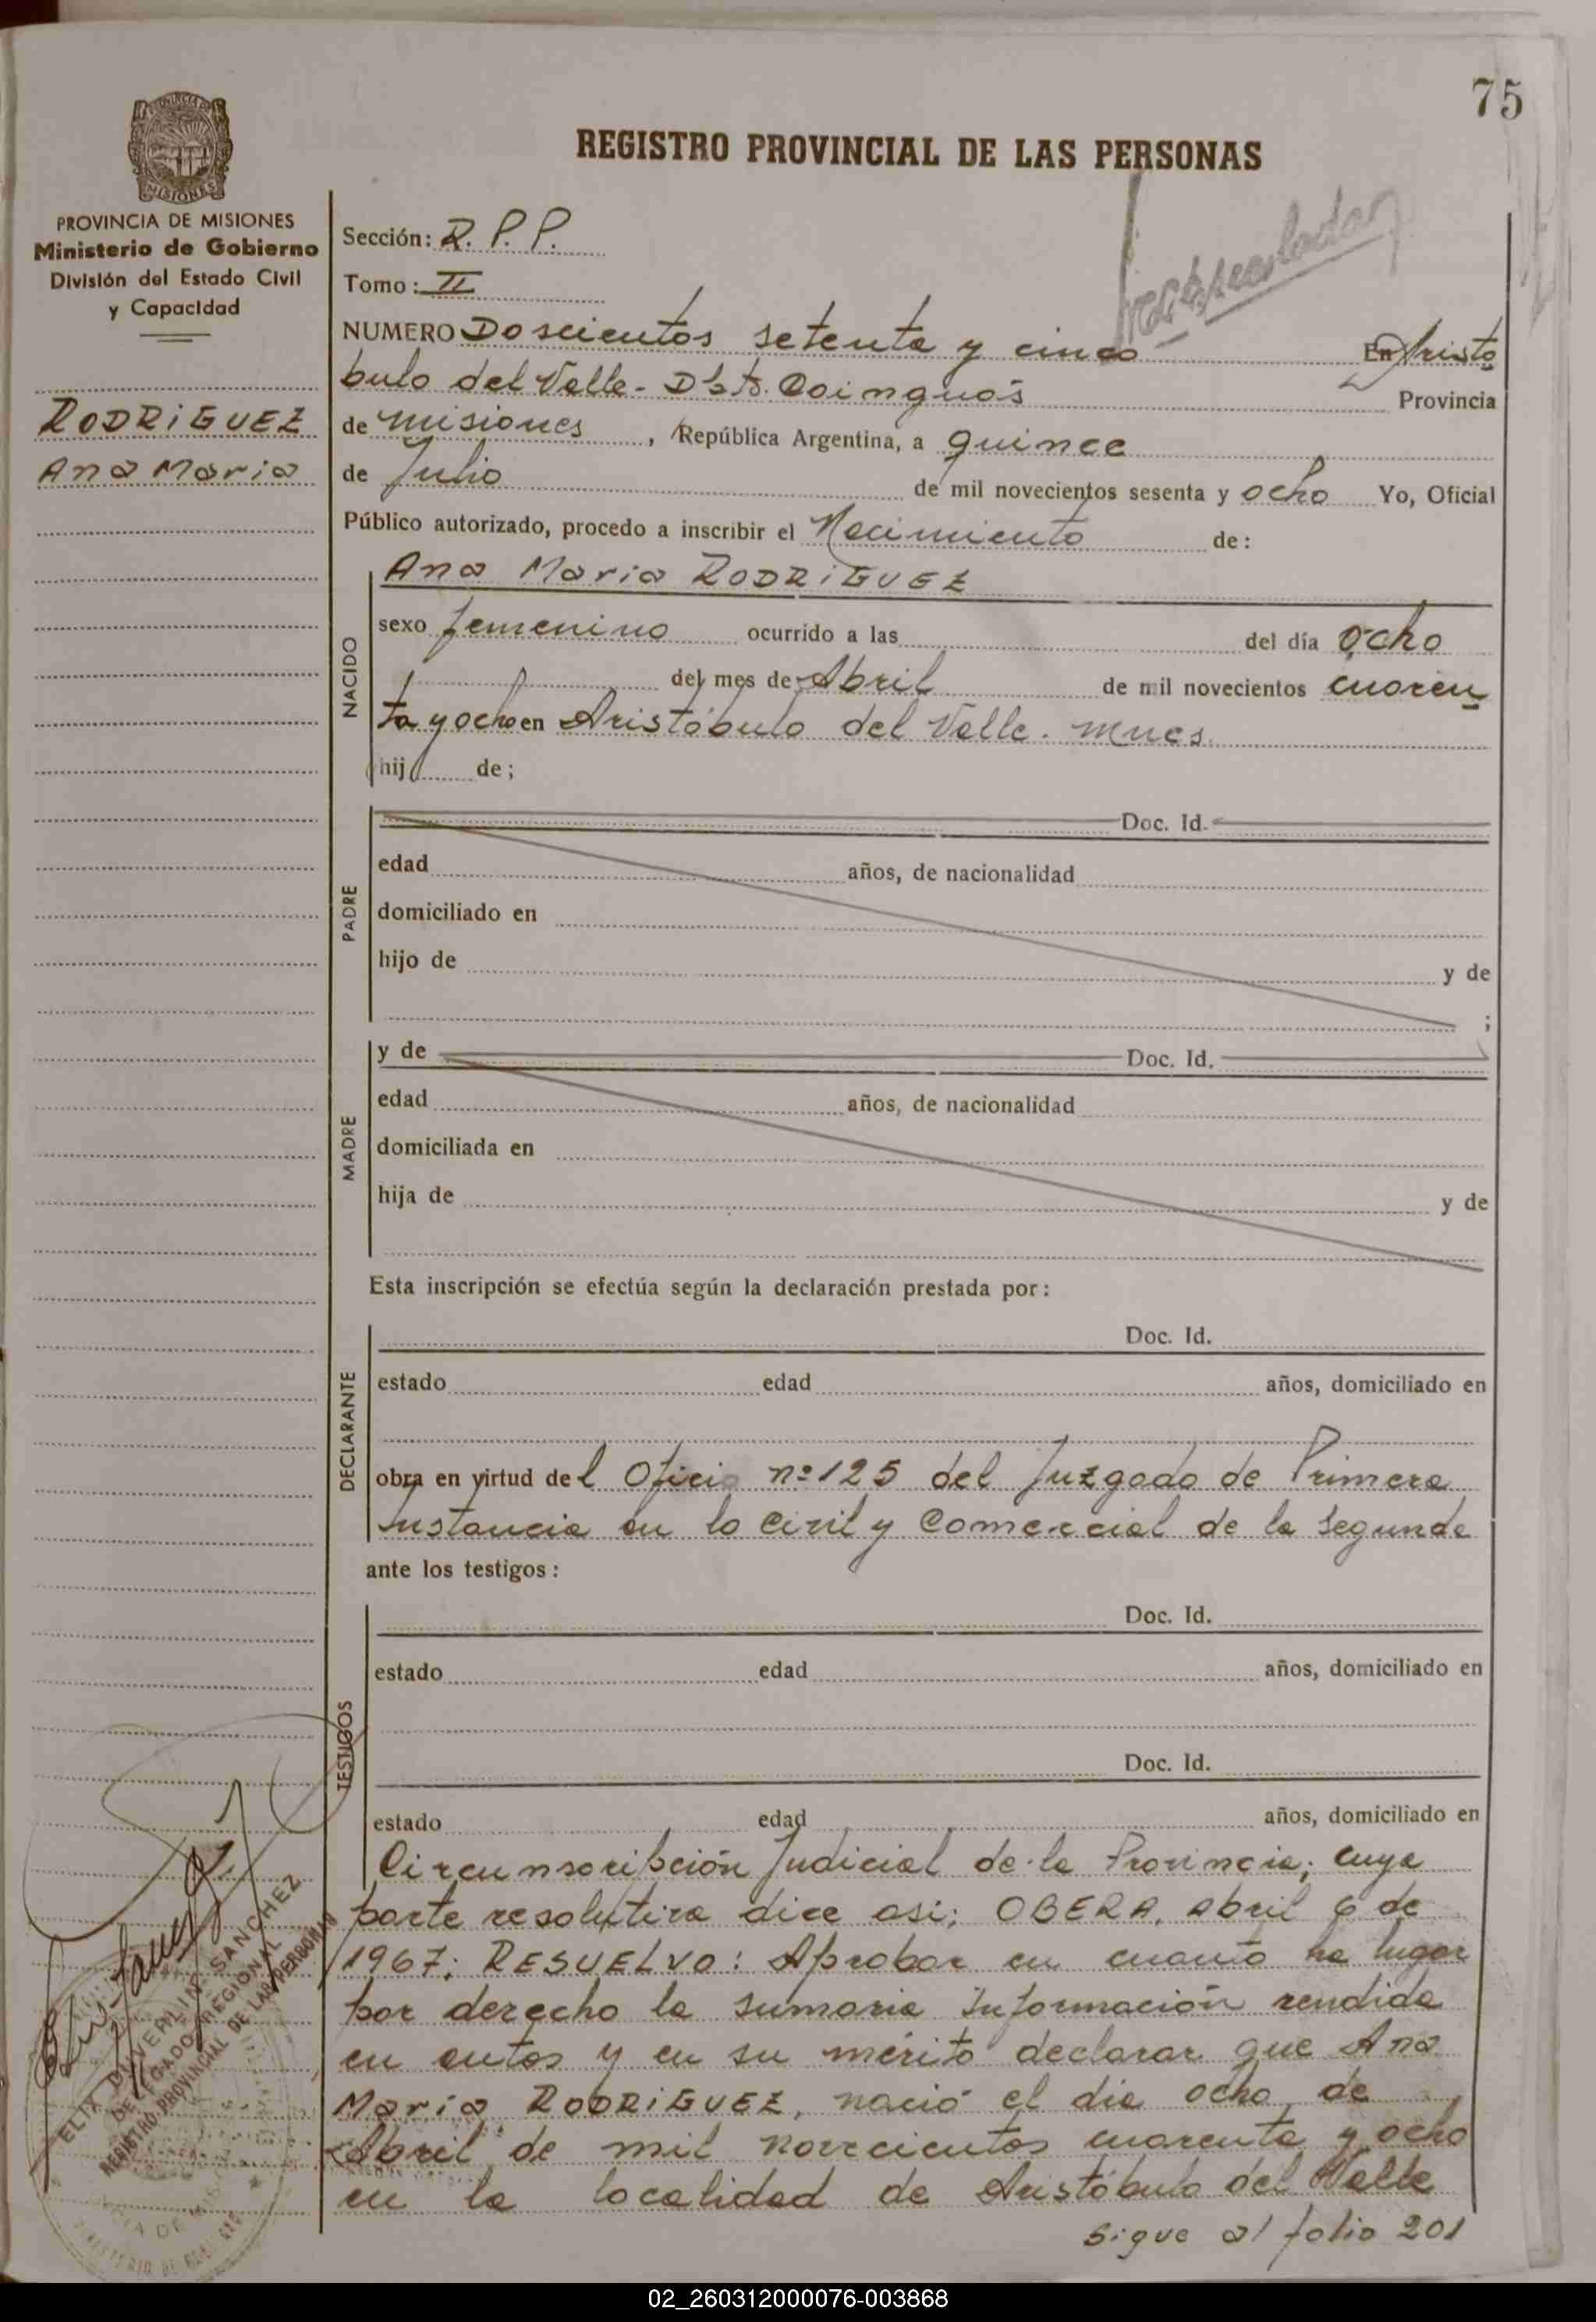 75
REGISTRO PROVINCIAL DE LAS PERSONAS
PROVINCIA DE MISIONES
Ministerio de Gobierno
División del Estado Civil
y Capacidad
RODRIGUEZ
Ana Maria
Sección: R. P. P.
Tomo: II
NUMERO Doscientos setenta y cinco En Aristo
bulo del Valle - Dto. Cainguás Provincia
de Misiones, República Argentina, a quince
de Julio de mil novecientos sesenta y ocho Yo, Oficial
Público autorizado, procedo a inscribir el Nacimiento de:
NACIDO
Ana Maria RODRIGUEZ
sexo femenino ocurrido a las del día ocho
del mes de Abril de mil novecientos cuaren
ta y ocho en Aristóbulo del Valle. Mnes.
hij de;
PADRE
Doc. Id.
edad años, de nacionalidad
domiciliado en
hijo de y de
;
MADRE
y de Doc. Id.
edad años, de nacionalidad
domiciliada en
hija de y de
Esta inscripción se efectúa según la declaración prestada por:
DECLARANTE
Doc. Id.
estado edad años, domiciliado en
obra en virtud del Oficio nº 125 del Juzgado de Primera
Instancia en lo Civil y Comercial de la Segunda
ante los testigos:
TESTIGOS
Doc. Id.
estado edad años, domiciliado en
Doc. Id.
estado edad años, domiciliado en
Circunscripción Judicial de la Provincia; cuya
parte resolutiva dice asi: OBERA, abril 6 de
1967; RESUELVO: Aprobar en cuanto ha lugar
por derecho la sumaria información rendida
en autos y en su mérito declarar que Ana
Maria RODRIGUEZ, nació el dia ocho de
Abril de mil novecientos cuarenta y ocho
en la localidad de Aristóbulo del Valle
Sigue al folio 201
FELIX DUVERLINE SANCHEZ
DELEGADO REGIONAL
REGISTRO PROVINCIAL DE LAS PERSONAS
02_260312000076-003868